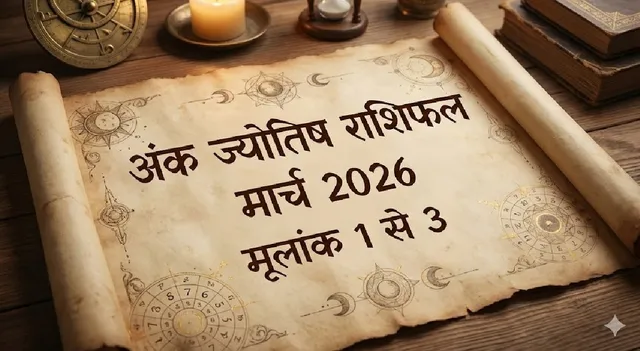 अंक ज्योतिष राशिफल
मार्च 2026
मूलांक 1 से 3